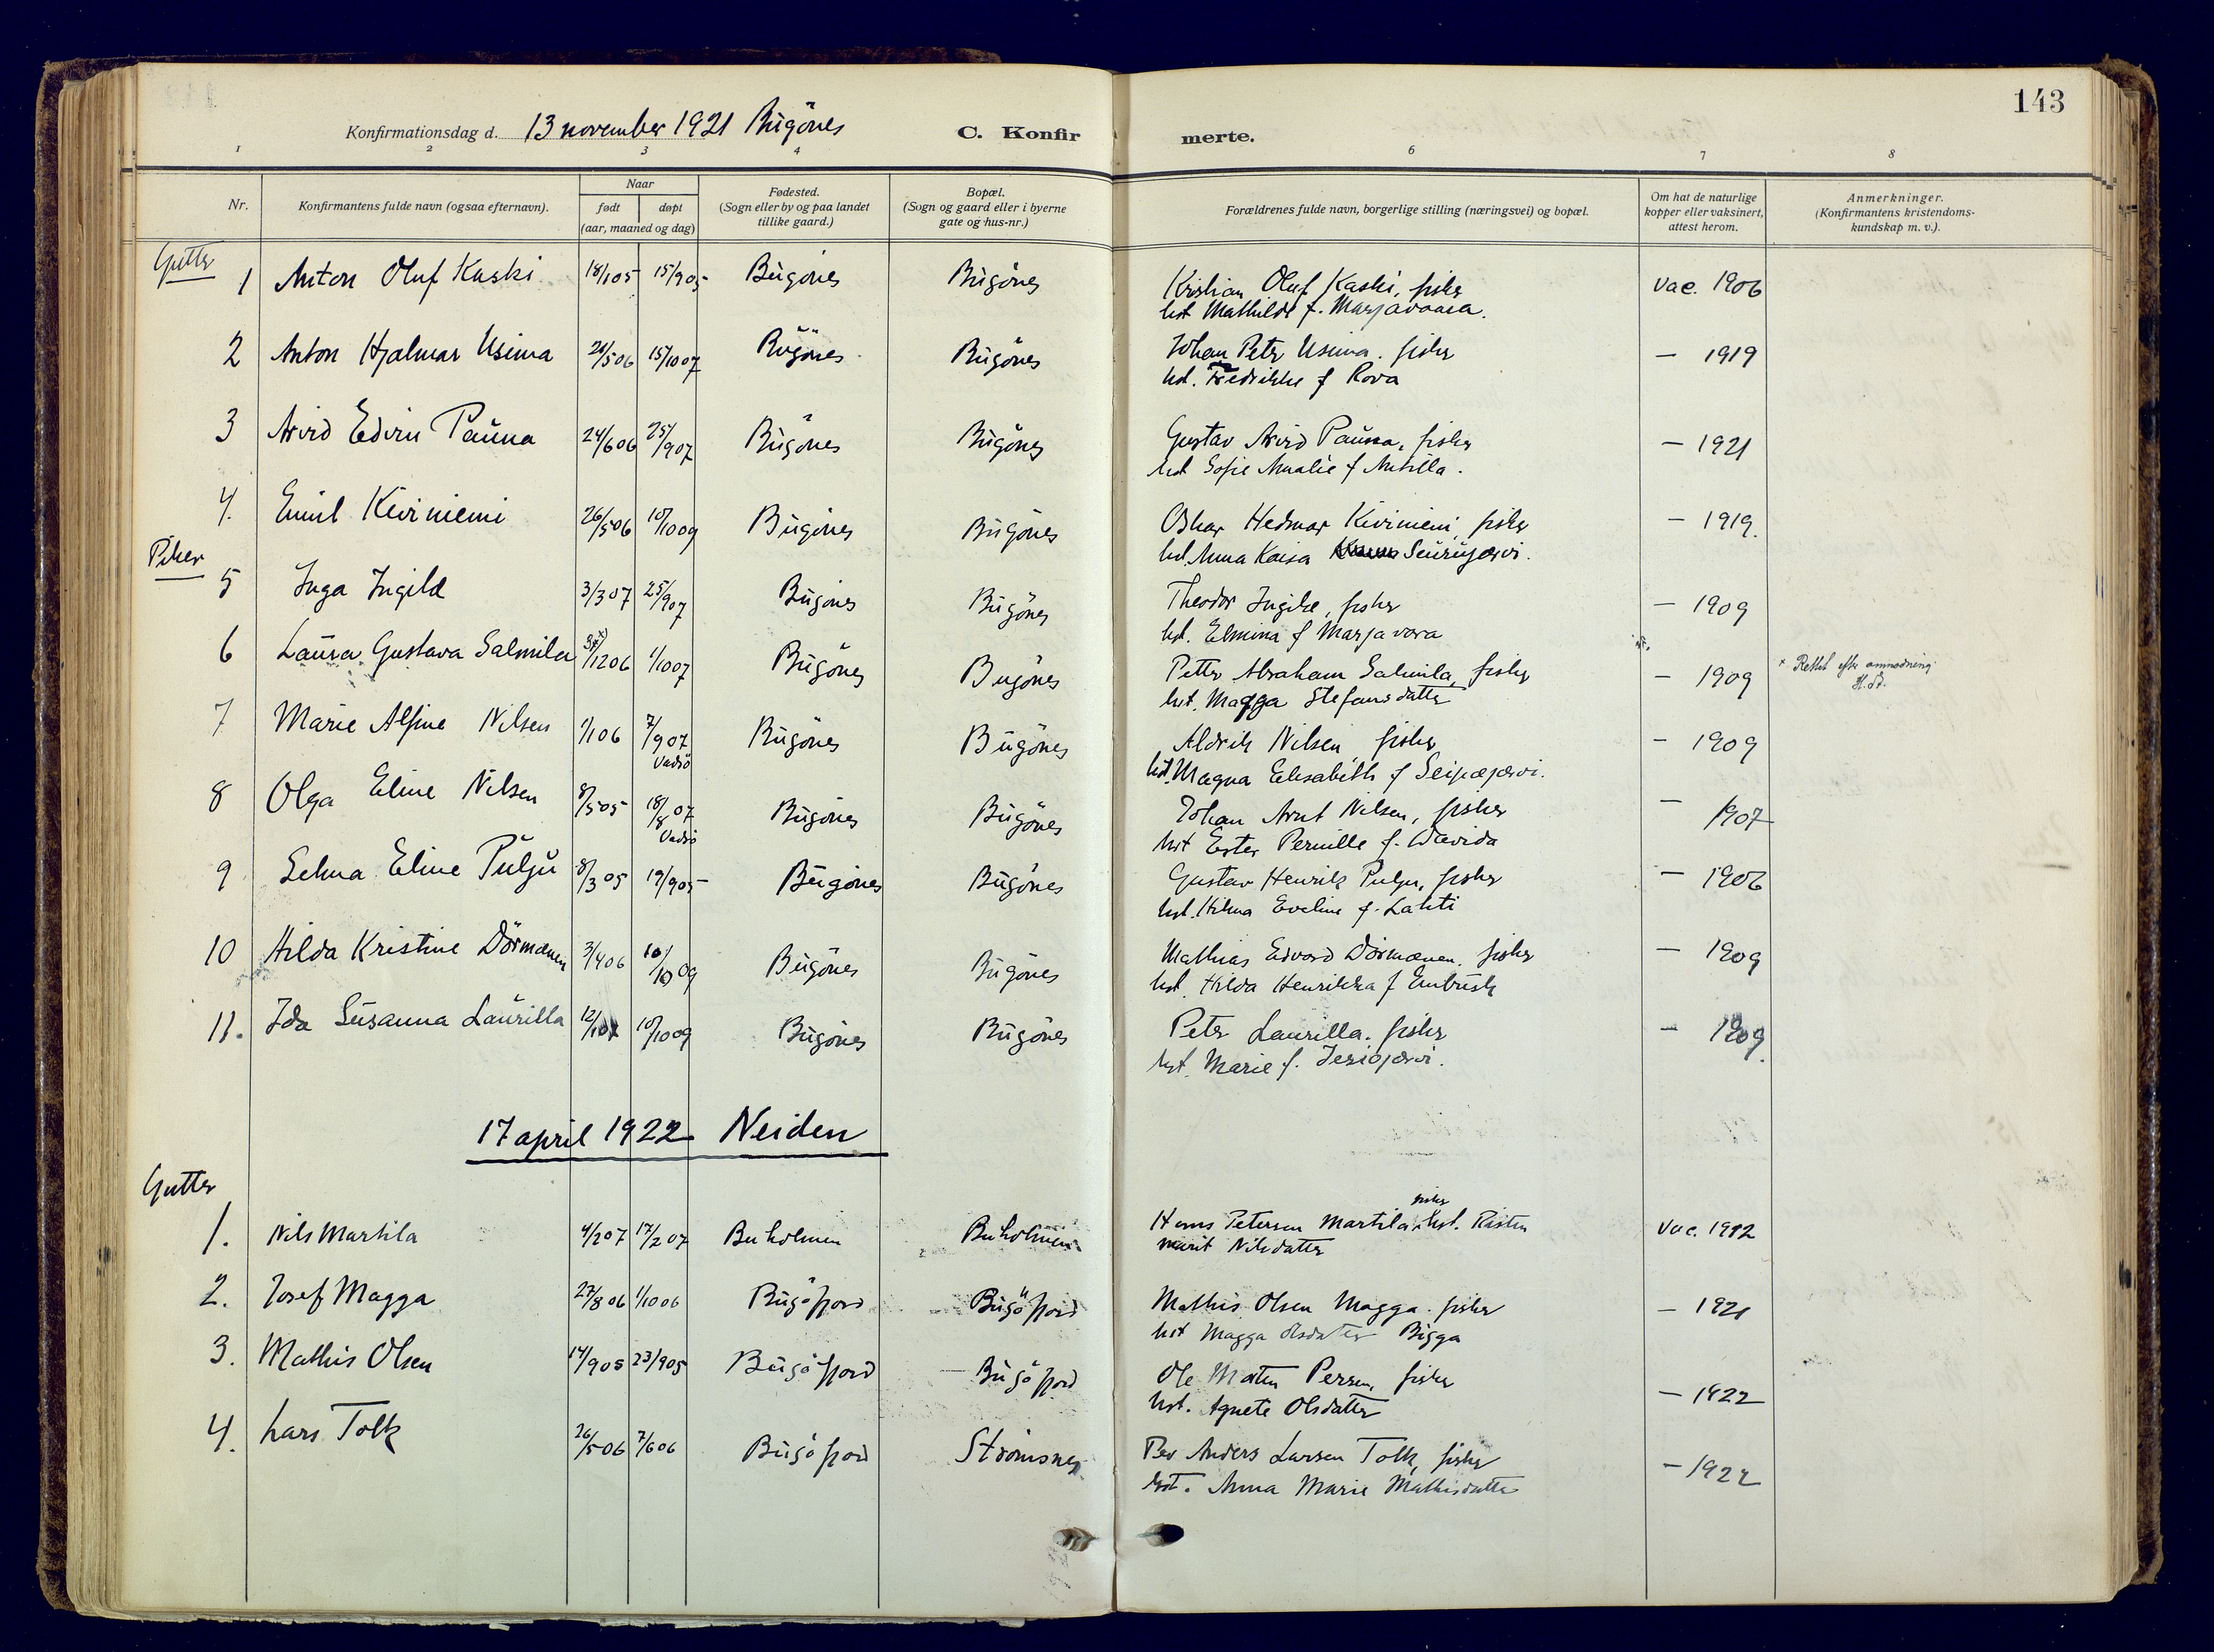 143
Konfirmationsdag d. 13 november 1921 Bügönes C. Konfirmerte.
1 2 3 4 6 7 8
Nr. Konfirmantens fulde navn (ogsaa efternavn). Naar født døpt (aar, maaned og dag) Fødested. (Sogn eller by og paa landet tillike gaard.) Bopæl. (Sogn og gaard eller i byerne gate og hus-nr.) Forældrenes fulde navn, borgerlige stilling (næringsvei) og bopæl. Om hat de naturlige kopper eller vaksinert, attest herom. Anmerkninger. (Konfirmantens kristendomskundskap m. v.).
Gutter
1 Anton Oluf Kaski 18/1 05 15/9 05 Bügönes Bügönes Kristian Oluf Kaski, fisker vac. 1906
hst Mathilde f. Marjavaara.
2 Anton Hjalmar Usima 21/5 06 15/10 07 Bügönes Bügönes Johan Petr Usima. fisker — 1919
hst. Fredrikke f Rova
3 Arvid Edvin Paüna 24/6 06 25/9 07 Bügönes Bügönes Gustav Arvid Paüna, fisker — 1921
hst Sofie Amalie f Antilla.
4. Emil Kiviniemi 26/5 06 10/10 09 Bügönes Bügönes Oskar Hedmar Kiviniemi, fisker — 1919.
hst. Anna Kaisa Seürüjærvi.
Piker
5 Inga Ingilæ 3/3 07 25/9 07 Bügönes Bügönes Theodor Ingilæ, fisker — 1909
hst. Elmina f Marjavara
6 Laüra Gustava Salmila /12 06 1/10 07 Bügönes Bügönes Petter Abraham Salmila, fisker — 1909 × Rettet efter anmodning
hst. Magga Stefansdatter
7 Marie Alfine Nilsen 1/1 06 7/9 07 Vadsö Bügönes Bügönes Aldrik Nilsen fisker — 1909
hst. Magna Elisabeth f Seipæjærvi.
8 Olga Eline Nilsen 8/5 05 18/8 07 Vadsö Bügönes Bügönes Johan Arnt Nilsen, fisker — 1907
hst Ester Pernille f. Davida
9 Selma Eline Püljü 8/3 05 19/9 05 Bügönes Bügönes Gustav Henrik Pulju, fisker — 1906
hst. Hilma Eveline f. Lahti
10 Hilda Kristine Dörmænen 3/4 06 10/10 09 Bügönes Bügönes Mathias Edvard Dörmænen. fisker — 1909
hst. Hilda Henrikka f Embüsk
11. Ida Süsanna Laürilla 12/1 07 10/10 09 Bügönes Bügönes Peter Laurilla. fisker — 1909.
hst. Marie f. Jesiojærvi.
17 april 1922 Neiden
Gutter
1. Nils Martila 4/2 07 17/2 07 Buholmen Buholmen Hans Petersen Martila fisker hst. Risten vac. 1912
Marit Nilsdatter
2. Josef Magga 27/8 06 1/10 06 Bügöfjord Bügöfjord Mathis Olsen Magga. fisker — 1921
hst Magga Olsdatter Bigga
3. Mathis Olsen 14/9 05 23/9 05 Bügöfjord Bügöfjord Ole Morten Persen, fisker — 1922
hst. Agnete Olsdatter
4. Lars Tolk 26/5 06 7/6 06 Bügöfjord Strömsnes Per Anders Larsen Tolk, fisker — 1922
hst. Anna Marie Mathisdatter